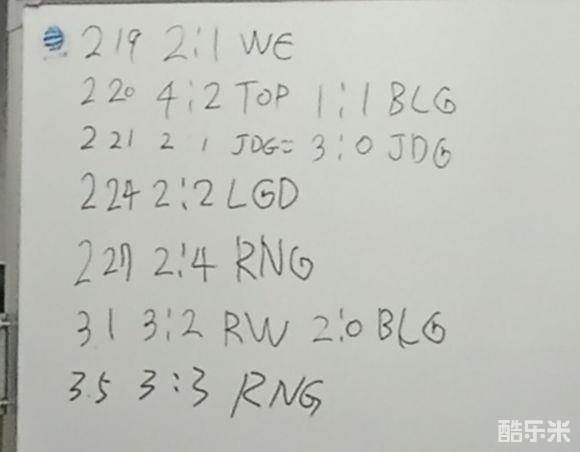 219 2:1 WE
220 4:2 TOP 1:1 BLG
221 2 1 JDG= 3:0 JDG
224 2:2 LGD
227 2:4 RNG
31 3:2 RW 2:0 BLG
3.5 3:3 RNG
酷乐米